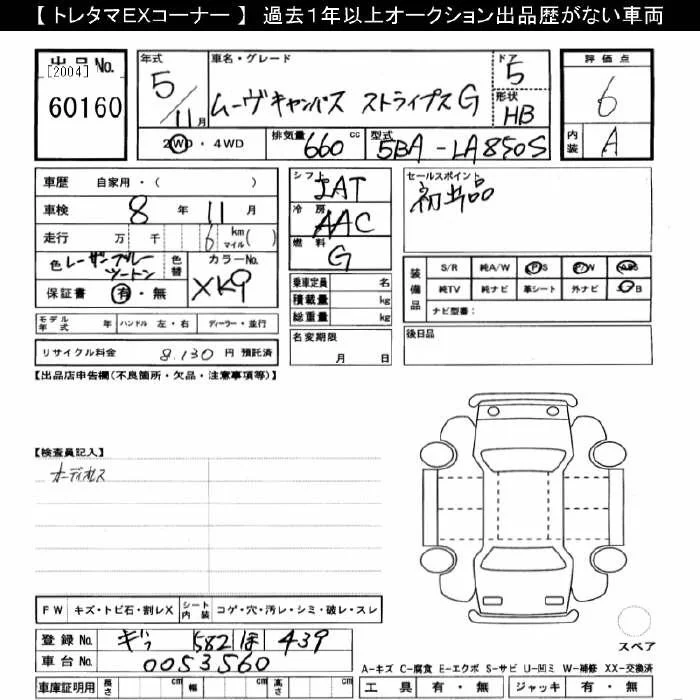 【 トレタマEXコーナー 】 過去1年以上オークション出品歴がない車両
出品 No.
[2004]
60160
年式
5/11月
車名・グレード
ムーヴキャンバス ストライプスG
ドア
5
形状
HB
評価点
6
内装
A
2WD・4WD
排気量 660 cc
型式 5BA-LA850S
車歴 自家用・( )
車検 8 年 11 月
走行 万 千 6 km マイル ( )
色 レーザーブルーツートン 色替
カラーNo. XK9
保証書 有・無
シフト IAT
冷房 AAC
燃料 G
乗車定員 名
積載量 kg
総重量 kg
名変期限 月 日
セールスポイント
初出品
装備品
S/R 純A/W P/S P/W ABS
純TV 純ナビ 革シート 外ナビ B
ナビ型番:
後日品
モデル年式 年 ハンドル 左・右 ディーラー・並行
リサイクル料金 8.130 円 預託済
【出品店申告欄(不良箇所・欠品・注意事項等)】
【検査員記入】
オーディオレス
FW キズ・トビ石・割レX シート内装 コゲ・穴・汚レ・シミ・破レ・スレ
登録 No. ギフ 582 ほ 439
車台 No. 0053560
車庫証明用 長さ cm 幅 cm 高さ cm
スペア
A-キズ C-腐食 E-エクボ S-サビ U-凹ミ W-補修 XX-交換済
工具 有・無 ジャッキ 有・無